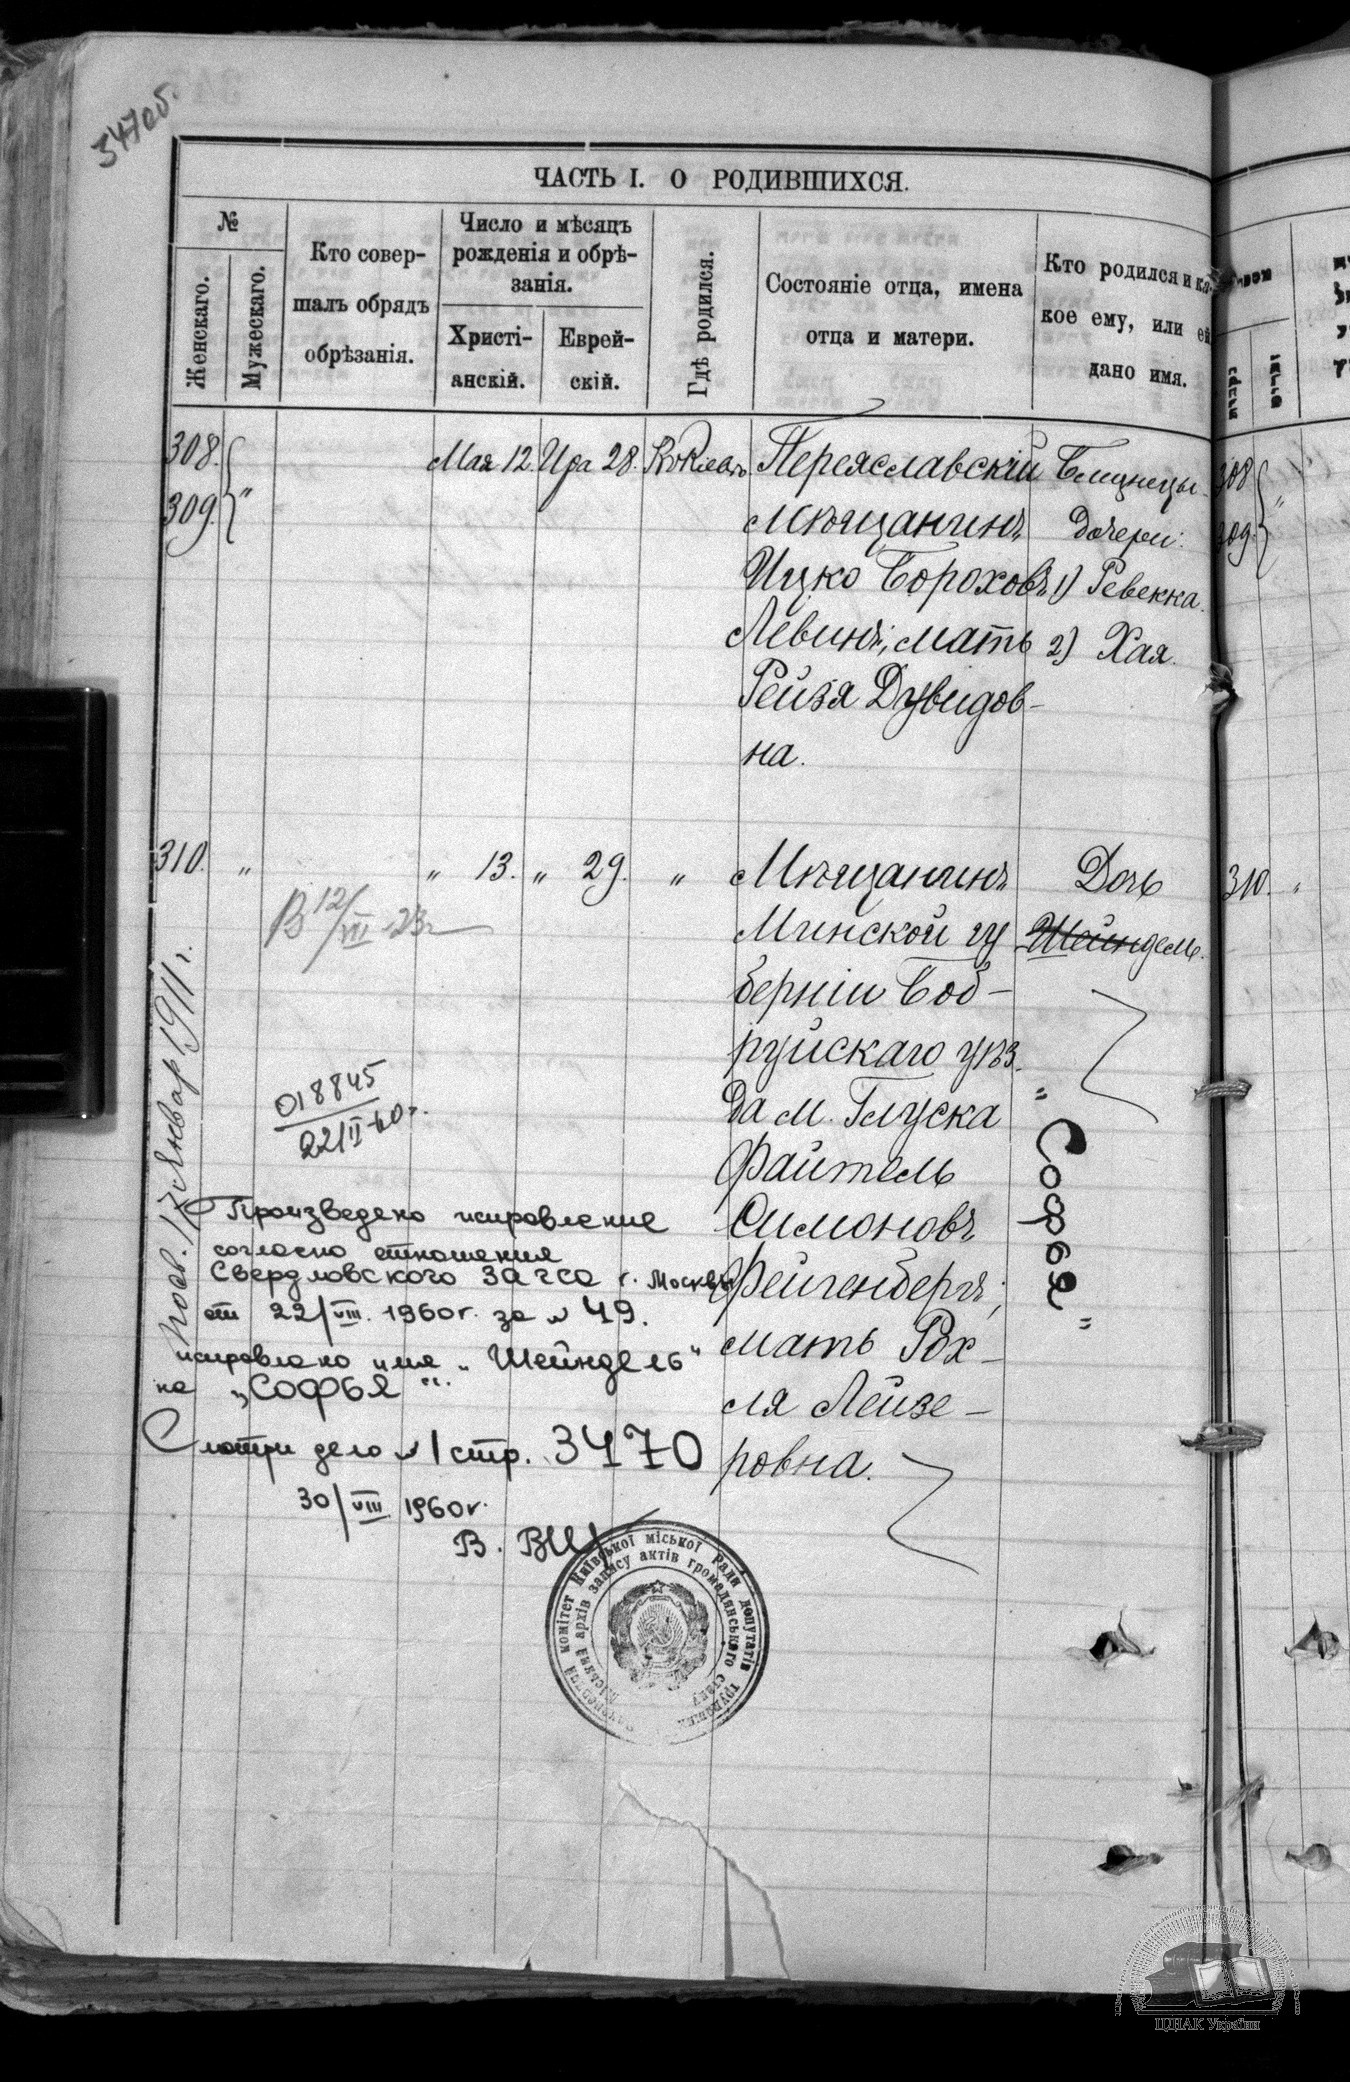 347об.
ЧАСТЬ I. О РОДИВШИХСЯ.
№
Женскаго.
Мужескаго.
Кто совер-
шалъ обрядъ
обрѣзанія.
Число и мѣсяцъ
рожденія и обрѣ-
занія.
Христі-
анскій.
Еврей-
скій.
Гдѣ родился.
Состояніе отца, имена
отца и матери.
Кто родился и ка-
кое ему, или ей
дано имя.
308.
309. "
Мая 12. Ира 28. въ Кіевѣ
Переяславскій
мѣщанинъ
Ицко Бороховъ
Левинъ, мать
Рейзя Дувидов-
на.
Близнецы
дочери:
1) Ревекка.
2) Хая.
308
309. "
310. " " 13. " 29. "
Мѣщанинъ
Минской гу
берніи Боб-
руйскаго уѣз.
да м. Глуска
Файтель
Симоновъ
Фейгенбергъ,
мать Рох-
ля Лейзе-
ровна.
Дочь
Шейндель.
" Софья "
310. "
В 12/VII 23г
018845
22/II-60г.
17 Январ 1911 г.
Произведено исправление
согласно отношения
Свердловского Загса г. Москвы
от 22/VIII. 1960г. за № 49.
исправлено имя „Шейндель"
на „СОФЬЯ".
Смотри дело № 1 стр. 3470
30/VIII 1960г.
Київської міської Ради депутатів трудящих
комітет
міський архів запису актів громадянського стану
ЦДІАК України